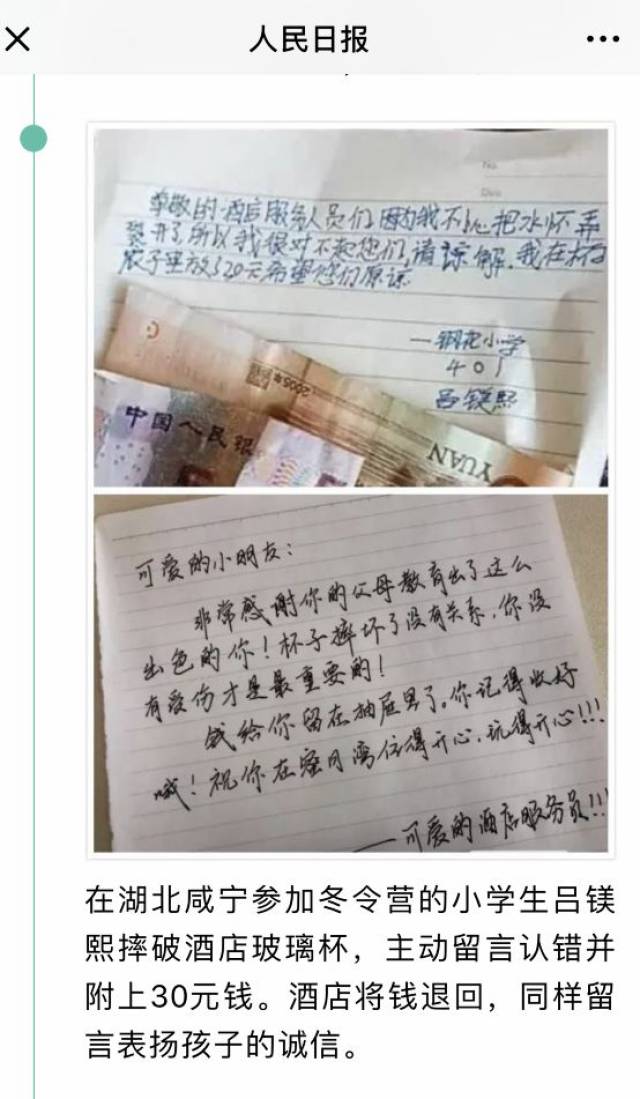 人民日报
No.
Date
尊敬的酒店服务人员们,因为我不小心把水怀弄
裂开了,所以我很对不起您们,请谅解,我在杯
底子里放了20元希望您们原谅
—钢花小学
401
吕镁熙
2005年
中国人民银
YUAN
可爱的小朋友:
非常感谢你的父母教育出了这么
出色的你!杯子摔坏了没有关系,你没
有受伤才是最重要的!
钱给你留在抽屉里了。你记得收好
哦!祝你在蜜月湾住得开心,玩得开心!!!
——可爱的酒店服务员!!!
在湖北咸宁参加冬令营的小学生吕镁
熙摔破酒店玻璃杯，主动留言认错并
附上30元钱。酒店将钱退回，同样留
言表扬孩子的诚信。